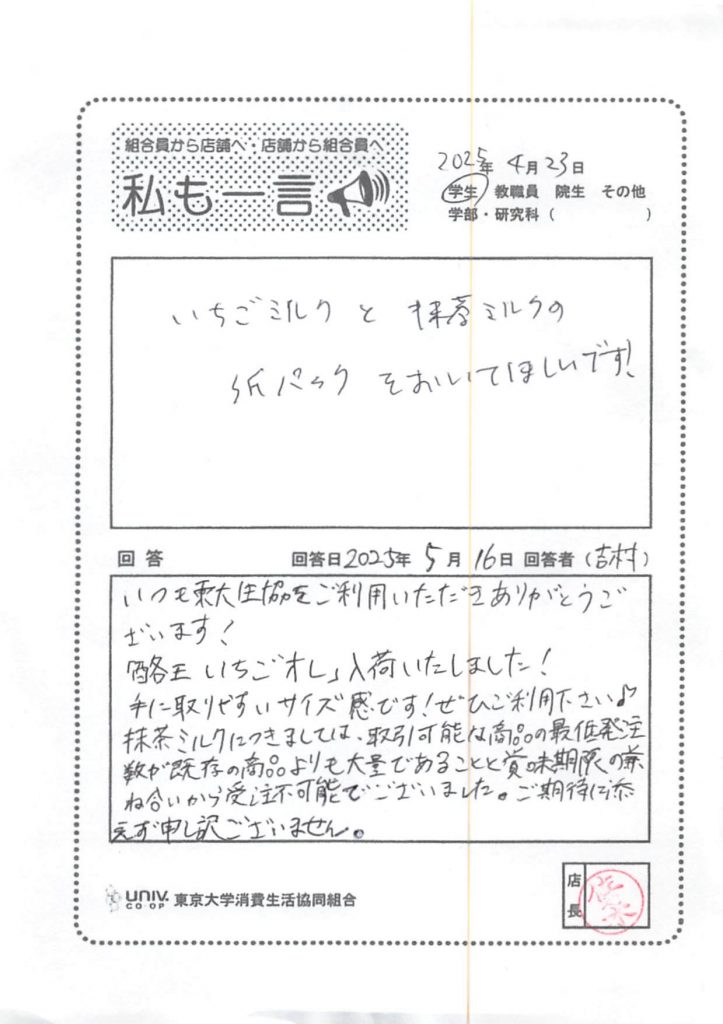 組合員から店舗へ・店舗から組合員へ
私も一言
2025年 4月23日
学生 教職員 院生 その他
学部・研究科( )
いちごミルクと 抹茶ミルクの
紙パック をおいてほしいです!
回答 回答日2025年 5月 16日 回答者(吉村)
いつも東大生協をご利用いただきありがとうご
ざいます!
「酪王 いちごオレ」入荷いたしました!
手に取りやすいサイズ感です!ぜひご利用下さい♪
抹茶ミルクにつきましては、取引可能な商品の最低発注
数が既存の商品よりも大量であることと賞味期限の兼
ね合いから受注不可能でございました。ご期待に添
えず申し訳ございません。
UNIV. CO-OP 東京大学消費生活協同組合
店長